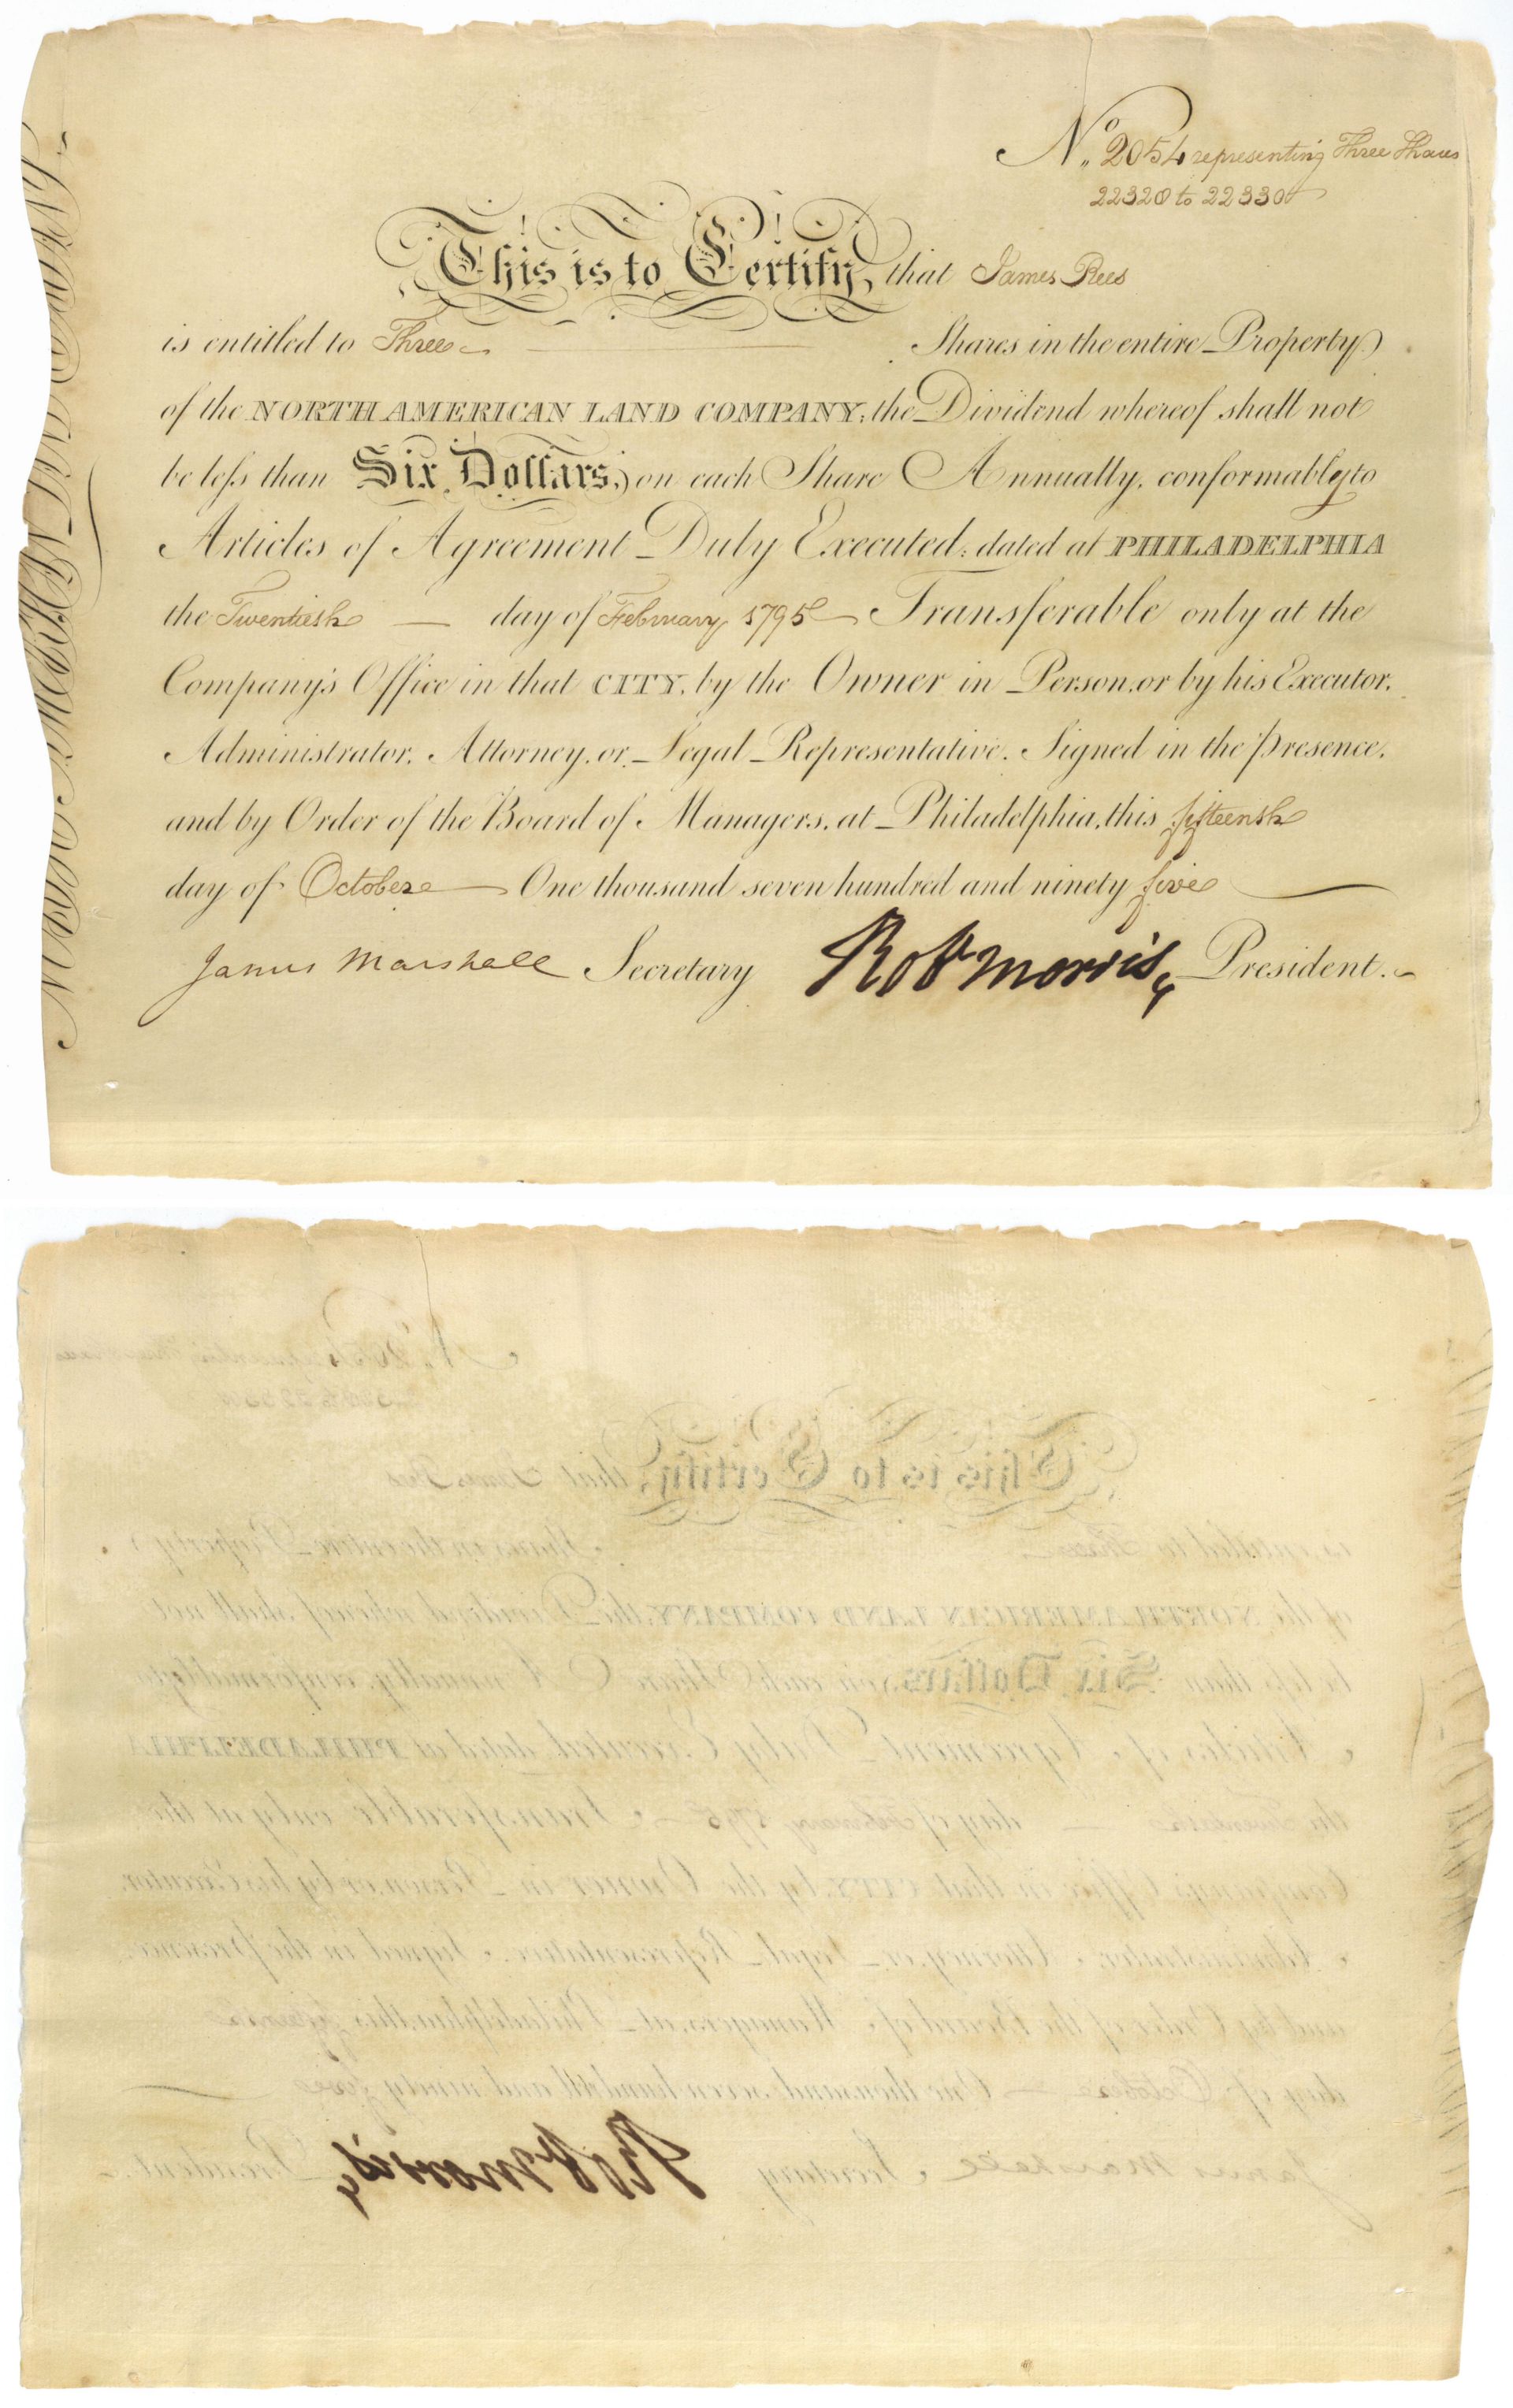 No. 2054 representing Three Shares
22328 to 22330
This is to Certify, that James Rees
is entitled to Three Shares in the entire Property
of the NORTH AMERICAN LAND COMPANY; the Dividend whereof shall not
be less than Six Dollars, on each Share Annually, conformably to
Articles of Agreement Duly Executed; dated at PHILADELPHIA
the Twentieth — day of February 1795 — Transferable only at the
Company's Office in that CITY, by the Owner in Person, or by his Executor,
Administrator, Attorney, or Legal Representative. Signed in the presence,
and by Order of the Board of Managers, at Philadelphia, this fifteenth
day of October — One thousand seven hundred and ninety five
James Marshall Secretary Robt Morris, President.
NORTH AMERICAN LAND COMPANY